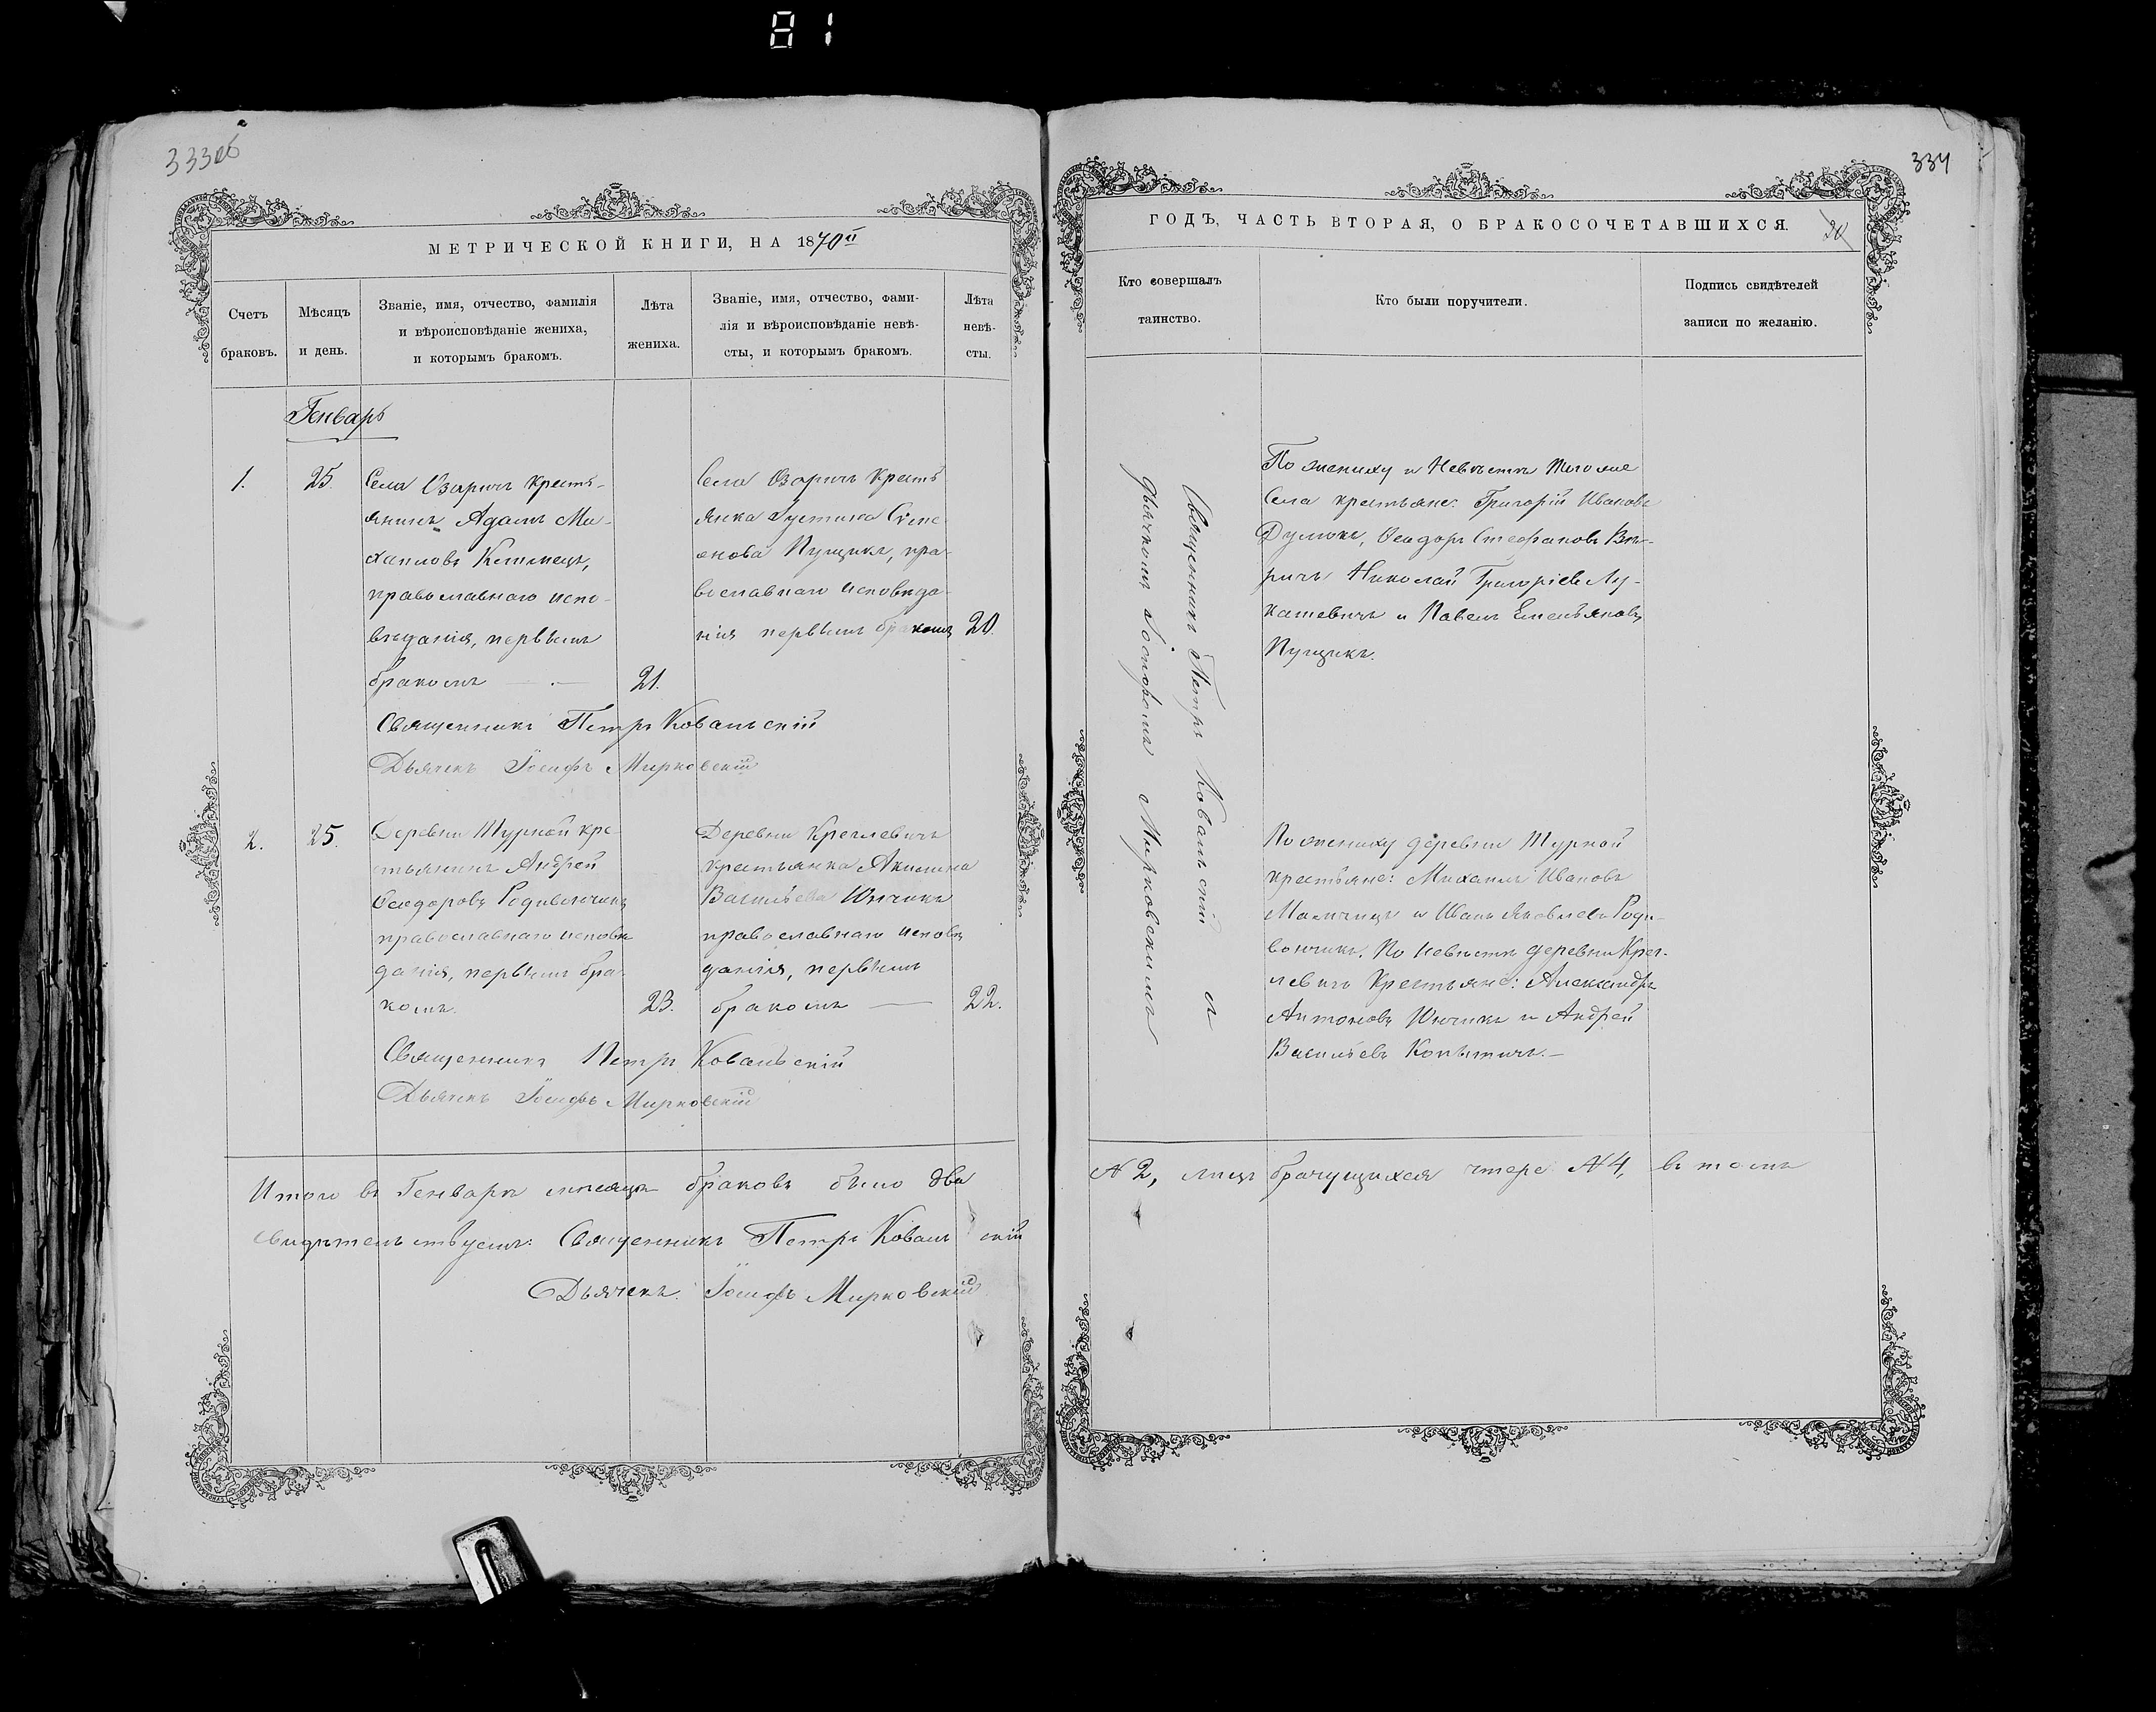 81
333об
МЕТРИЧЕСКОЙ КНИГИ, НА 1870й
Счетъ
браковъ.
Мѣсяцъ
и день.
Званіе, имя, отчество, фамилія
и вѣроисповѣданіе жениха,
и которымъ бракомъ.
Лѣта
жениха.
Званіе, имя, отчество, фами-
лія и вѣроисповѣданіе невѣ-
сты, и которымъ бракомъ.
Лѣта
невѣ-
сты.
Генварь
1.
25.
Села Озаричъ кресть-
янинъ Адамъ Ми-
хаиловъ
православнаго испо-
вѣданія, первымъ
бракомъ
21.
Села Озаричъ кресть
янка Іустина
Пущикъ, пра-
вославнаго исповѣда-
нія первымъ бракомъ
20.
Священникъ Петръ Ковальскій
Дьячекъ Іосифъ Мирковскій
2.
25.
Деревни Турной кре-
стьянинъ Андрей
Ѳеодоровъ Родивончикъ
православнаго исповѣ
данія, первымъ бра-
комъ.
23.
Деревни Креглевичъ
крестьянка Акилина
Васильева Юнчикъ
православнаго исповѣ
данія, первымъ
бракомъ
22.
Священникъ Петръ Ковальскій
Дьячекъ Іосифъ Мирковскій
Итого въ Генварѣ мѣсяцѣ браковъ было два
свидѣтельствуемъ: Священникъ Петръ Ковальскій
Дьячекъ Іосифъ Мирковскій
334
ГОДЪ, ЧАСТЬ ВТОРАЯ, О БРАКОСОЧЕТАВШИХСЯ.
20
Кто совершалъ
таинство.
Кто были поручители.
Подпись свидѣтелей
записи по желанію.
Священникъ Петръ Ковальскій съ
дьячкомъ Іосифомъ Мирковскимъ
По жениху и Невѣстѣ того же
Села крестьяне: Григорій Ивановъ
Ѳеодоръ Стефановъ
Николай Григоріевъ Лу-
кашевичъ и Павелъ Емельяновъ
Пущикъ.
По жениху деревни Турной
крестьяне: Михаилъ Ивановъ
и Иванъ Яковлевъ Роди-
вончикъ. По невѣстѣ деревни Крег-
левичъ Крестьяне: Александръ
Антоновъ Юнчикъ и Андрей
Васильевъ Копытичъ.
№ 2, лицъ брачущихся четыре № 4, въ томъ